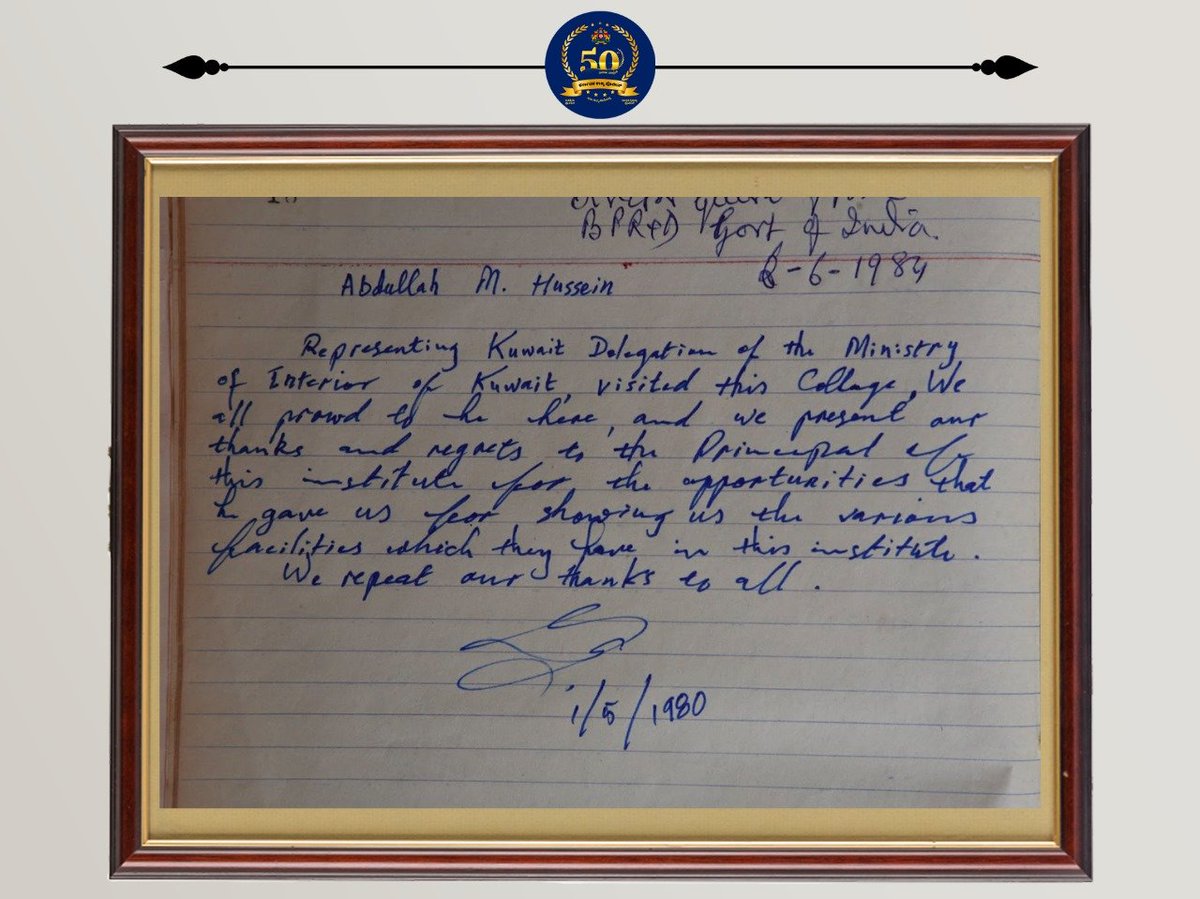 50
BPR&D Govt of India.
6-6-1984
Abdullah M. Hussein
Representing Kuwait Delegation of the Ministry
of Interior of Kuwait, visited this Collage, We
all prowd to be here, and we present our
thanks and regrets to the Principal of
this institute for the opportunities that
he gave us for showing us the various
facilities which they have in this institute.
We repeat our thanks to all.
1/5/1980